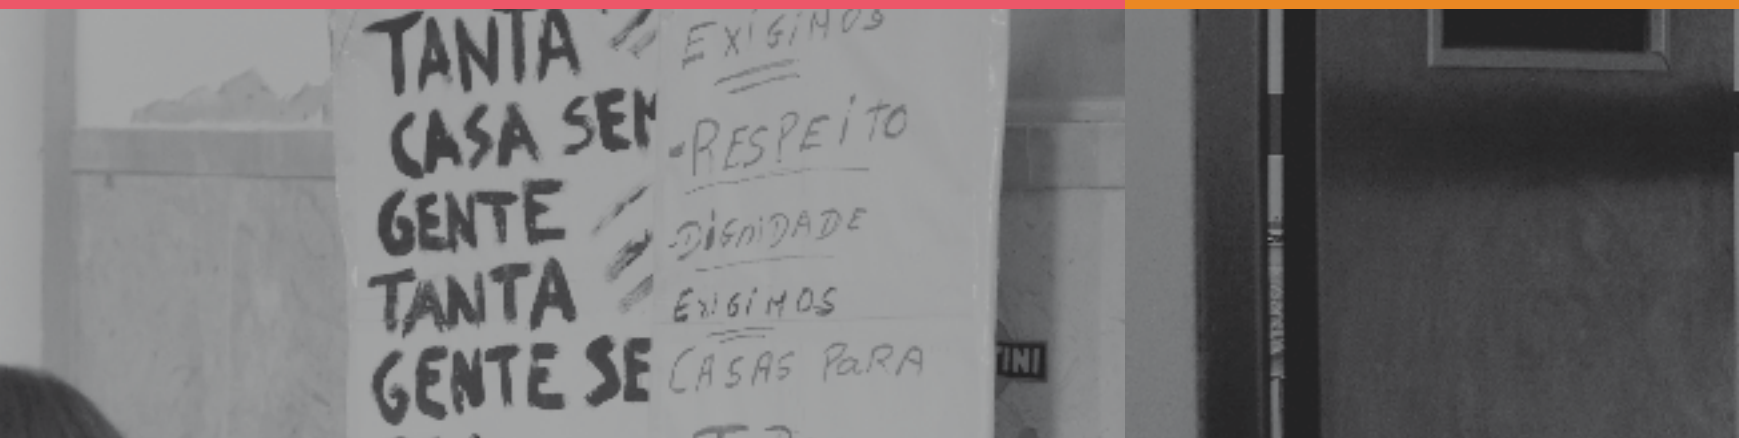 TANTA
CASA SEM
GENTE
TANTA
GENTE SE
EXIGIMOS
-RESPEITO
-DIGNIDADE
EXIGIMOS
CASAS PARA
TINI